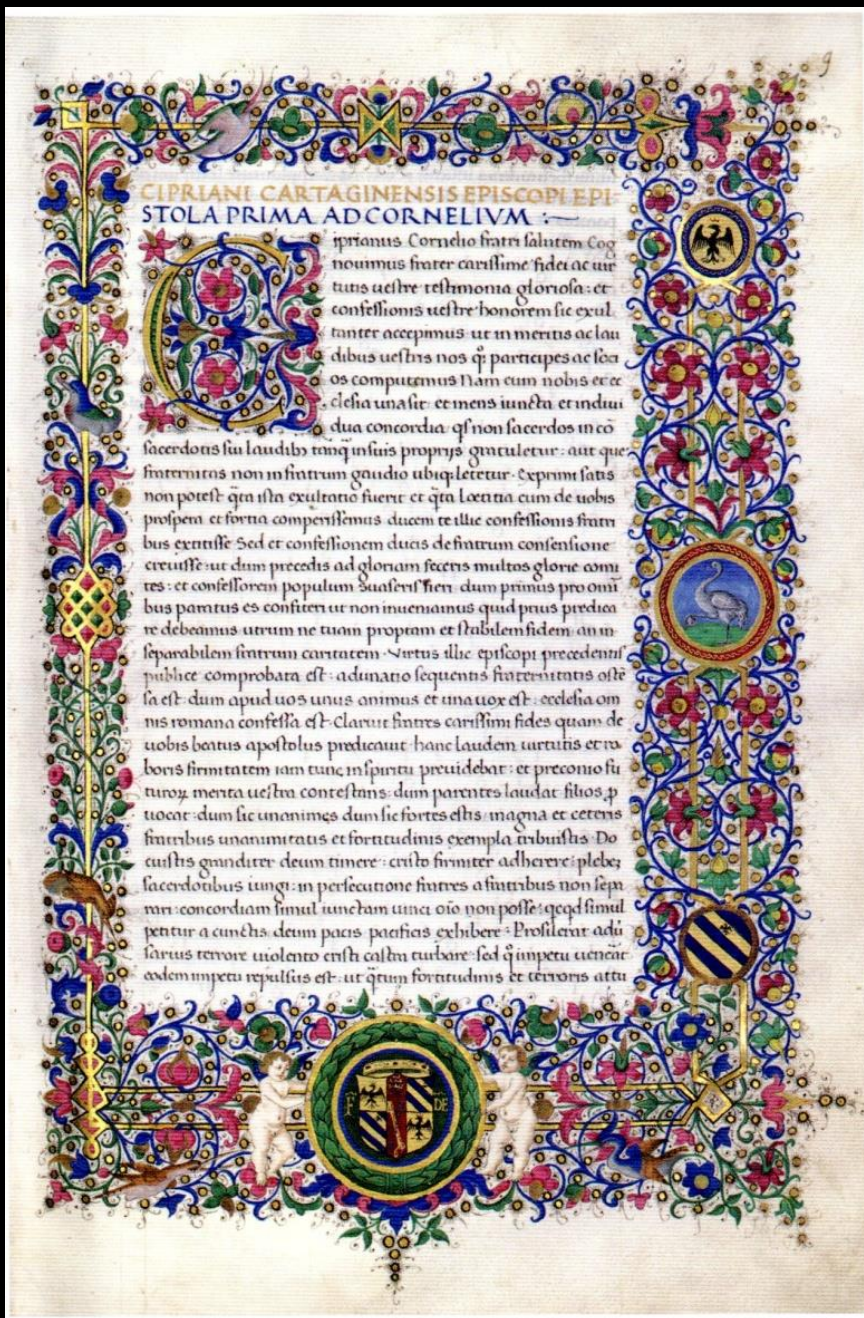 9
CIPRIANI CARTAGINENSIS EPISCOPI EPI
STOLA PRIMA AD CORNELIVM :—
Ciprianus Cornelio fratri salutem Cog
nouimus frater carissime fidei ac uir
tutis uestre testimonia gloriosa: et
confessionis uestre honorem sic exul
tanter accepimus ut in meritis ac lau
dibus uestris nos q̃; participes ac soci
os computemus Nam cum nobis et ec
clesia una sit et mens iuncta et indiui
dua concordia q̃s non sacerdos in cõ
sacerdotis sui laudibȝ tanq̃ in suis proprijs gratuletur: aut que
fraternitas non in fratrum gaudio ubiq; letetur. Exprimi satis
non potest q̃ta ista exultatio fuerit et q̃ta lœtitia cum de uobis
prospera et fortia comperissemus ducem te illic confessionis fratri
bus extitisse Sed et confessionem ducis de fratrum consensione
creuisse: ut dum precedis ad gloriam feceris multos glorie comi
tes: et confessorem populum suaseris fieri dum primus pro omĩ
bus paratus es confiteri ut non inueniamus quid prius predica
re debeamus utrum ne tuam proptam et stabilem fidem an in
separabilem fratrum caritatem. Virtus illic episcopi precedentis
publice comprobata est: adunatio sequentis fraternitatis ostẽ
sa est: dum apud uos unus animus et una uox est: ecclesia om
nis romana confessa est. Claruit fratres carissimi fides quam de
uobis beatus apostolus predicauit hanc laudem uirtutis et ro
boris firmitatem iam tunc in spiritu preuidebat: et preconio fu
turoꝝ merita uestra contestans: dum parentes laudat filios ꝓ
uocat: dum sic unanimes dum sic fortes estis: magna et ceteris
fratribus unanimitatis et fortitudinis exempla tribuistis. Do
cuistis granditer deum timere: cristo firmiter adherere: plebeȝ
sacerdotibus iungi: in persecutione fratres a fratribus non sepa
rari: concordiam simul iunctam uinci oĩo non posse: qcqd simul
petitur a cunctis deum pacis pacificis exhibere. Prosilerat adũ
sarius terrore uiolento cristi castra turbare: sed q̃ impetu uenerat
eodem impetu repulsus est: ut q̃tum fortitudinis et terroris attu
F DE